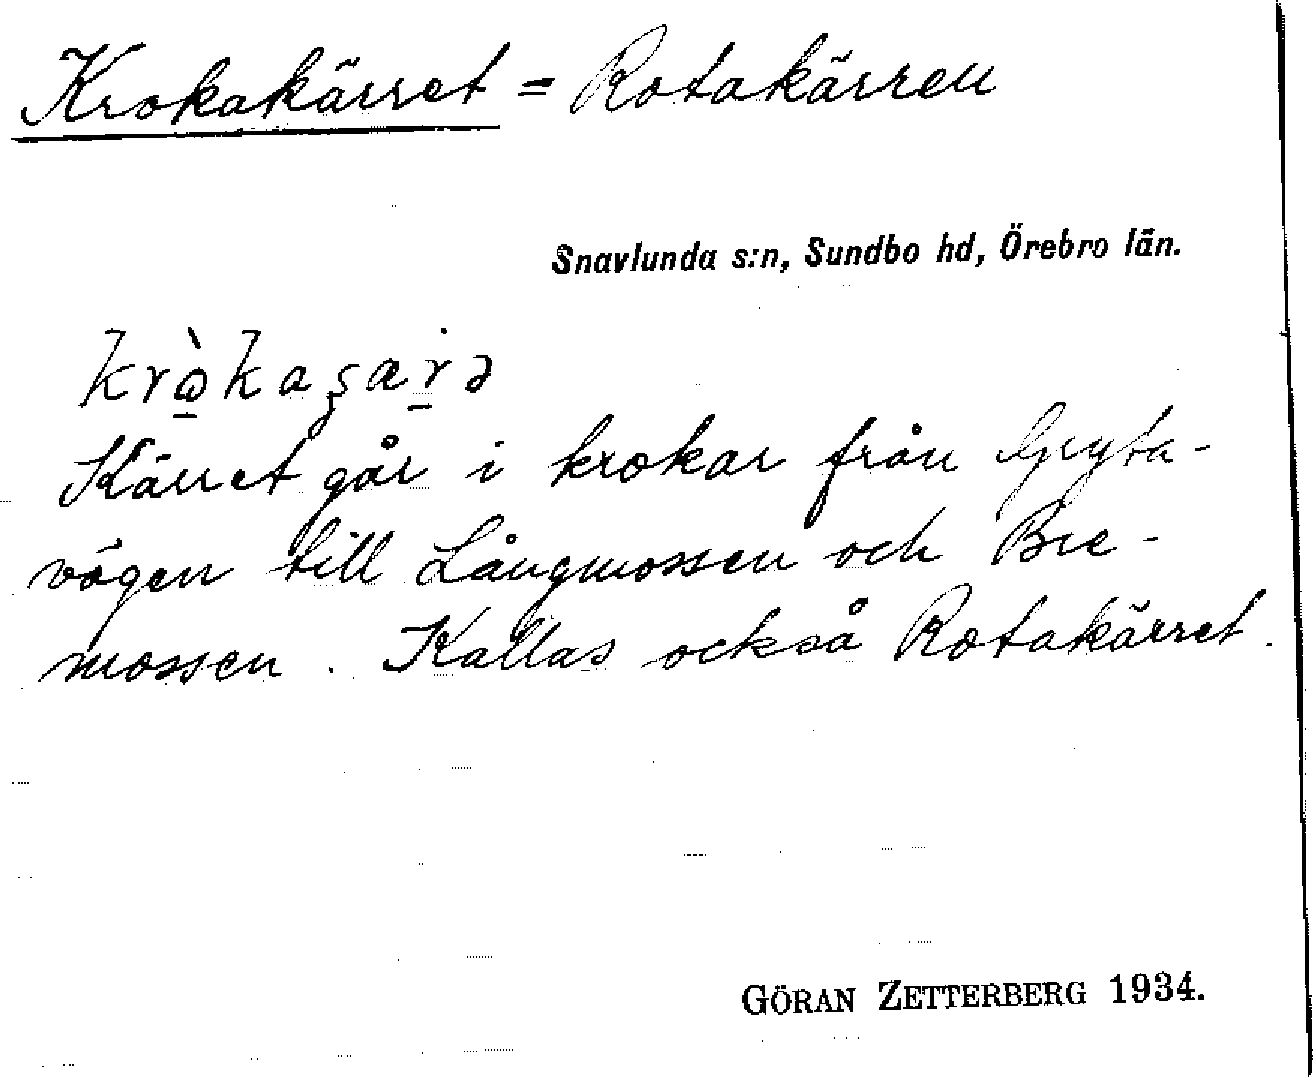 Krokakärret = Rotakärren
Snavlunda s:n, Sundbo hd, Örebro län.
krὼ̲kaʂar̲ə
Kärret går i krokar från Gryta-
vägen till Långmossen och Bre-
mossen. Kallas också Rotakärret.
GÖRAN ZETTERBERG 1934.